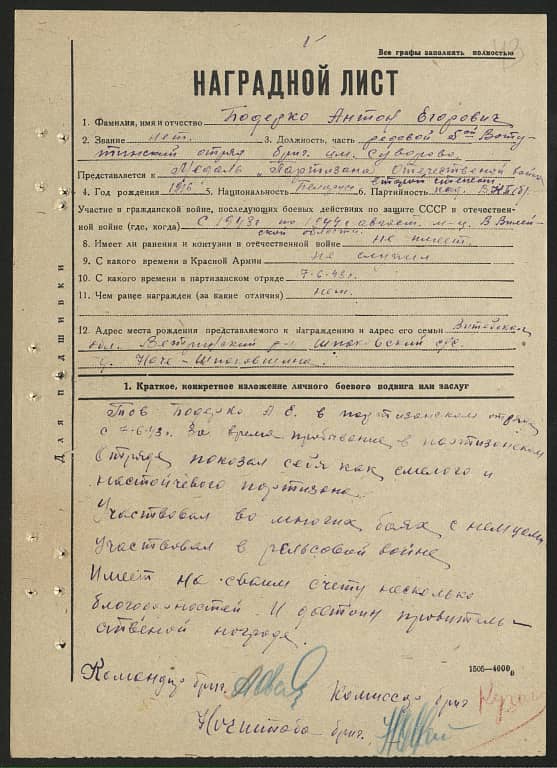 Все графы заполнять полностью
НАГРАДНОЙ ЛИСТ
1. Фамилия, имя и отчество Бодерко Антон Егорович
2. Звание нет. 3. Должность, часть рядовой
отряд бриг. им. Суворова
Представляется к Медаль "Партизана Отечественной войны
второй степени
4. Год рождения 1916 5. Национальность Белорус 6. Партийность
Участие в гражданской войне, последующих боевых действиях по защите СССР в отечествен-
ной войне (где, когда) С 1943г по 1944г август. В Вилей-
ской области.
8. Имеет ли ранения и контузии в отечественной войне не имеет.
9. С какого времени в Красной Армии не служил
10. С какого времени в партизанском отряде 7-6-43г.
11. Чем ранее награжден (за какие отличия) нет.
12. Адрес места рождения представляемого к награждению и адрес его семьи Витебская
обл. Ветринский р-н с/с.
Для подшивки
1. Краткое, конкретное изложение личного боевого подвига или заслуг
Тов Бодерко А Е. в партизанском отряде
с 7-6-43г. За время пребывание в партизанском
отряде показал себя как смелого и
настойчевого партизана.
Участвовал во многих баях с немцами
Участвовал в рельсовой войне
Имеет на сваим счету несколько
благодарностей. И достоин правитель-
ственой награде.
1505—4000
Командир бриг. Комиссар бриг
бриг.